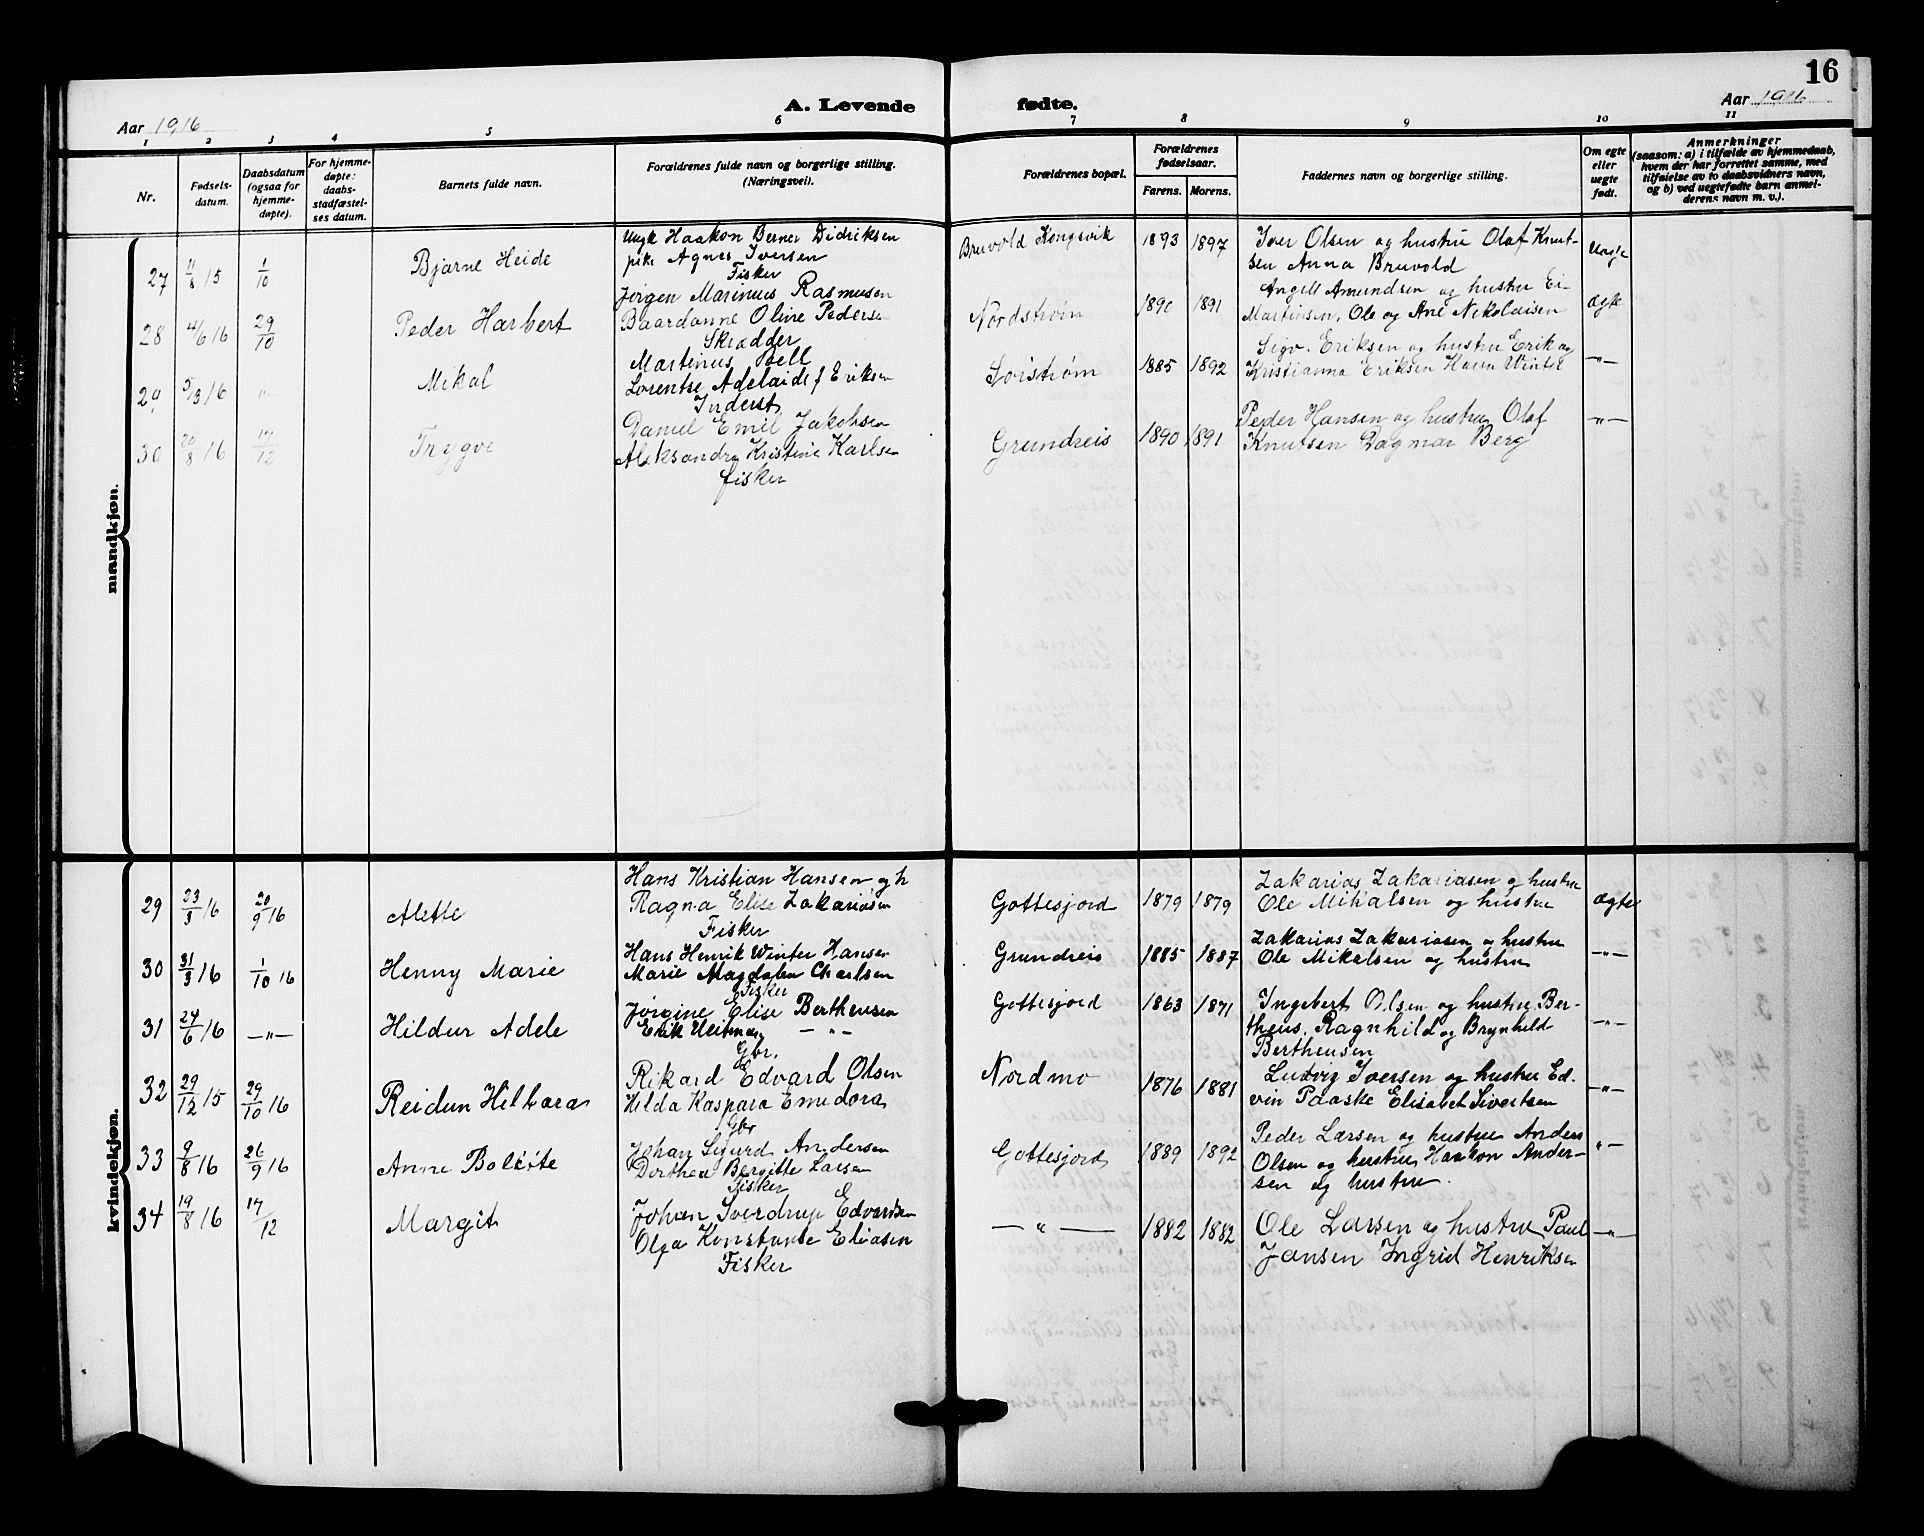 16
A. Levende fødte.
Aar 1916
Aar 1916
1 2 3 4 5 6 7 8 9 10 11
Nr.
Fødsels-
datum.
Daabsdatum
(ogsaa for
hjemme-
døpte).
For hjemme-
døpte:
daabs-
stadfæstel-
ses datum.
Barnets fulde navn.
Forældrenes fulde navn og borgerlige stilling.
(Næringsvei).
Forældrenes bopæl.
Forældrenes
fødselsaar.
Farens. Morens.
Faddernes navn og borgerlige stilling.
Om egte
eller
uegte
født.
Anmerkninger
(saasom: a) i tilfælde av hjemmedaab,
hvem der har forrettet samme, med
tilføielse av to daabsvidners navn,
og b) ved uegtefødte barn anmel-
derens navn m. v.).
mandkjøn.
27 11/8 15 1/10 Bjarne Heide
Ungk Haakon Berner Didriksen
pike Agnes Iversen
Fisker
Bruvold Kongsvik 1893 1897
Iver Olsen og hustru Olaf Knut-
sen Anna Bruvold
Uegte
28 4/6 16 29/10 Peder Harbert
Jørgen Marinius Rasmusen
Baardanne Oline Pedersen
Skrædder
Nordstrøm 1890 1891
Angell Amundsen og hustru Ei-
Martinsen, Ole og Ane Nikolaisen
ægte
29 5/3 16 -"- Mikal
Martinus
Lorentse Adelaide f Eriksen
Inderst
Sørstrøm 1885 1892
Sigv. Eriksen og hustru Erik og
Kristianna Eriksen Winter
-"-
30 20/8 16 17/12 Trygve
Daniel Emil Jakobsen
Aleksandra Kristine Karlsen
fisker
Grundreis 1890 1891
Peder Hansen og hustru Olaf
Knutsen Dagmar Berg
-"-
kvindekjøn.
29 23/3 16 20/9 16 Alette
Hans Kristian Hansen og h
Ragna Elise Zakariasen
Fisker
Gottesjord 1879 1879
Zakarias Zakariasen og hustru
Ole Mikalsen og hustru
ægte
30 31/3 16 1/10 16 Henny Marie
Hans Henrik Winter Hansen
Marie Magdalen Charlsen
Fisker
Grundreis 1885 1887
Zakarias Zakariasen og hustru
Ole Mikalsen og hustru
-"-
31 24/6 16 -"- Hildur Adele
Jørgine Elise Bertheusen
Erik -"-
Gbr.
Gottesjord 1863 1871
Ingebert Olsen og hustru Ber-
theus, Ragnhild og Brynhild
Bertheusen
-"-
32 29/12 15 29/10 16 Reidun Hilbara
Rikard Edvard Olsen
Hilda Kaspara Emedora
Gbr
Nordmo 1876 1881
Ludvig Iversen og hustru Ed-
vin Paaske Elisabet Sivertsen
-"-
33 9/8 16 26/9 16 Anne Bolette
Johan Sigurd Andersen
Dorthea Bergitte Larsen
Fisker
Gottesjord 1889 1892
Peder Larsen og hustru Anders
Olsen og hustru Haakon Ander-
sen og hustru.
-"-
34 19/8 16 17/12 Margit
Johan Sverdrup Edvardsen
Olga Konstante Eliasen
Fisker
-"- 1882 1882
Ole Larsen og hustru Paul
Jansen Ingrid Henriksen
-"-